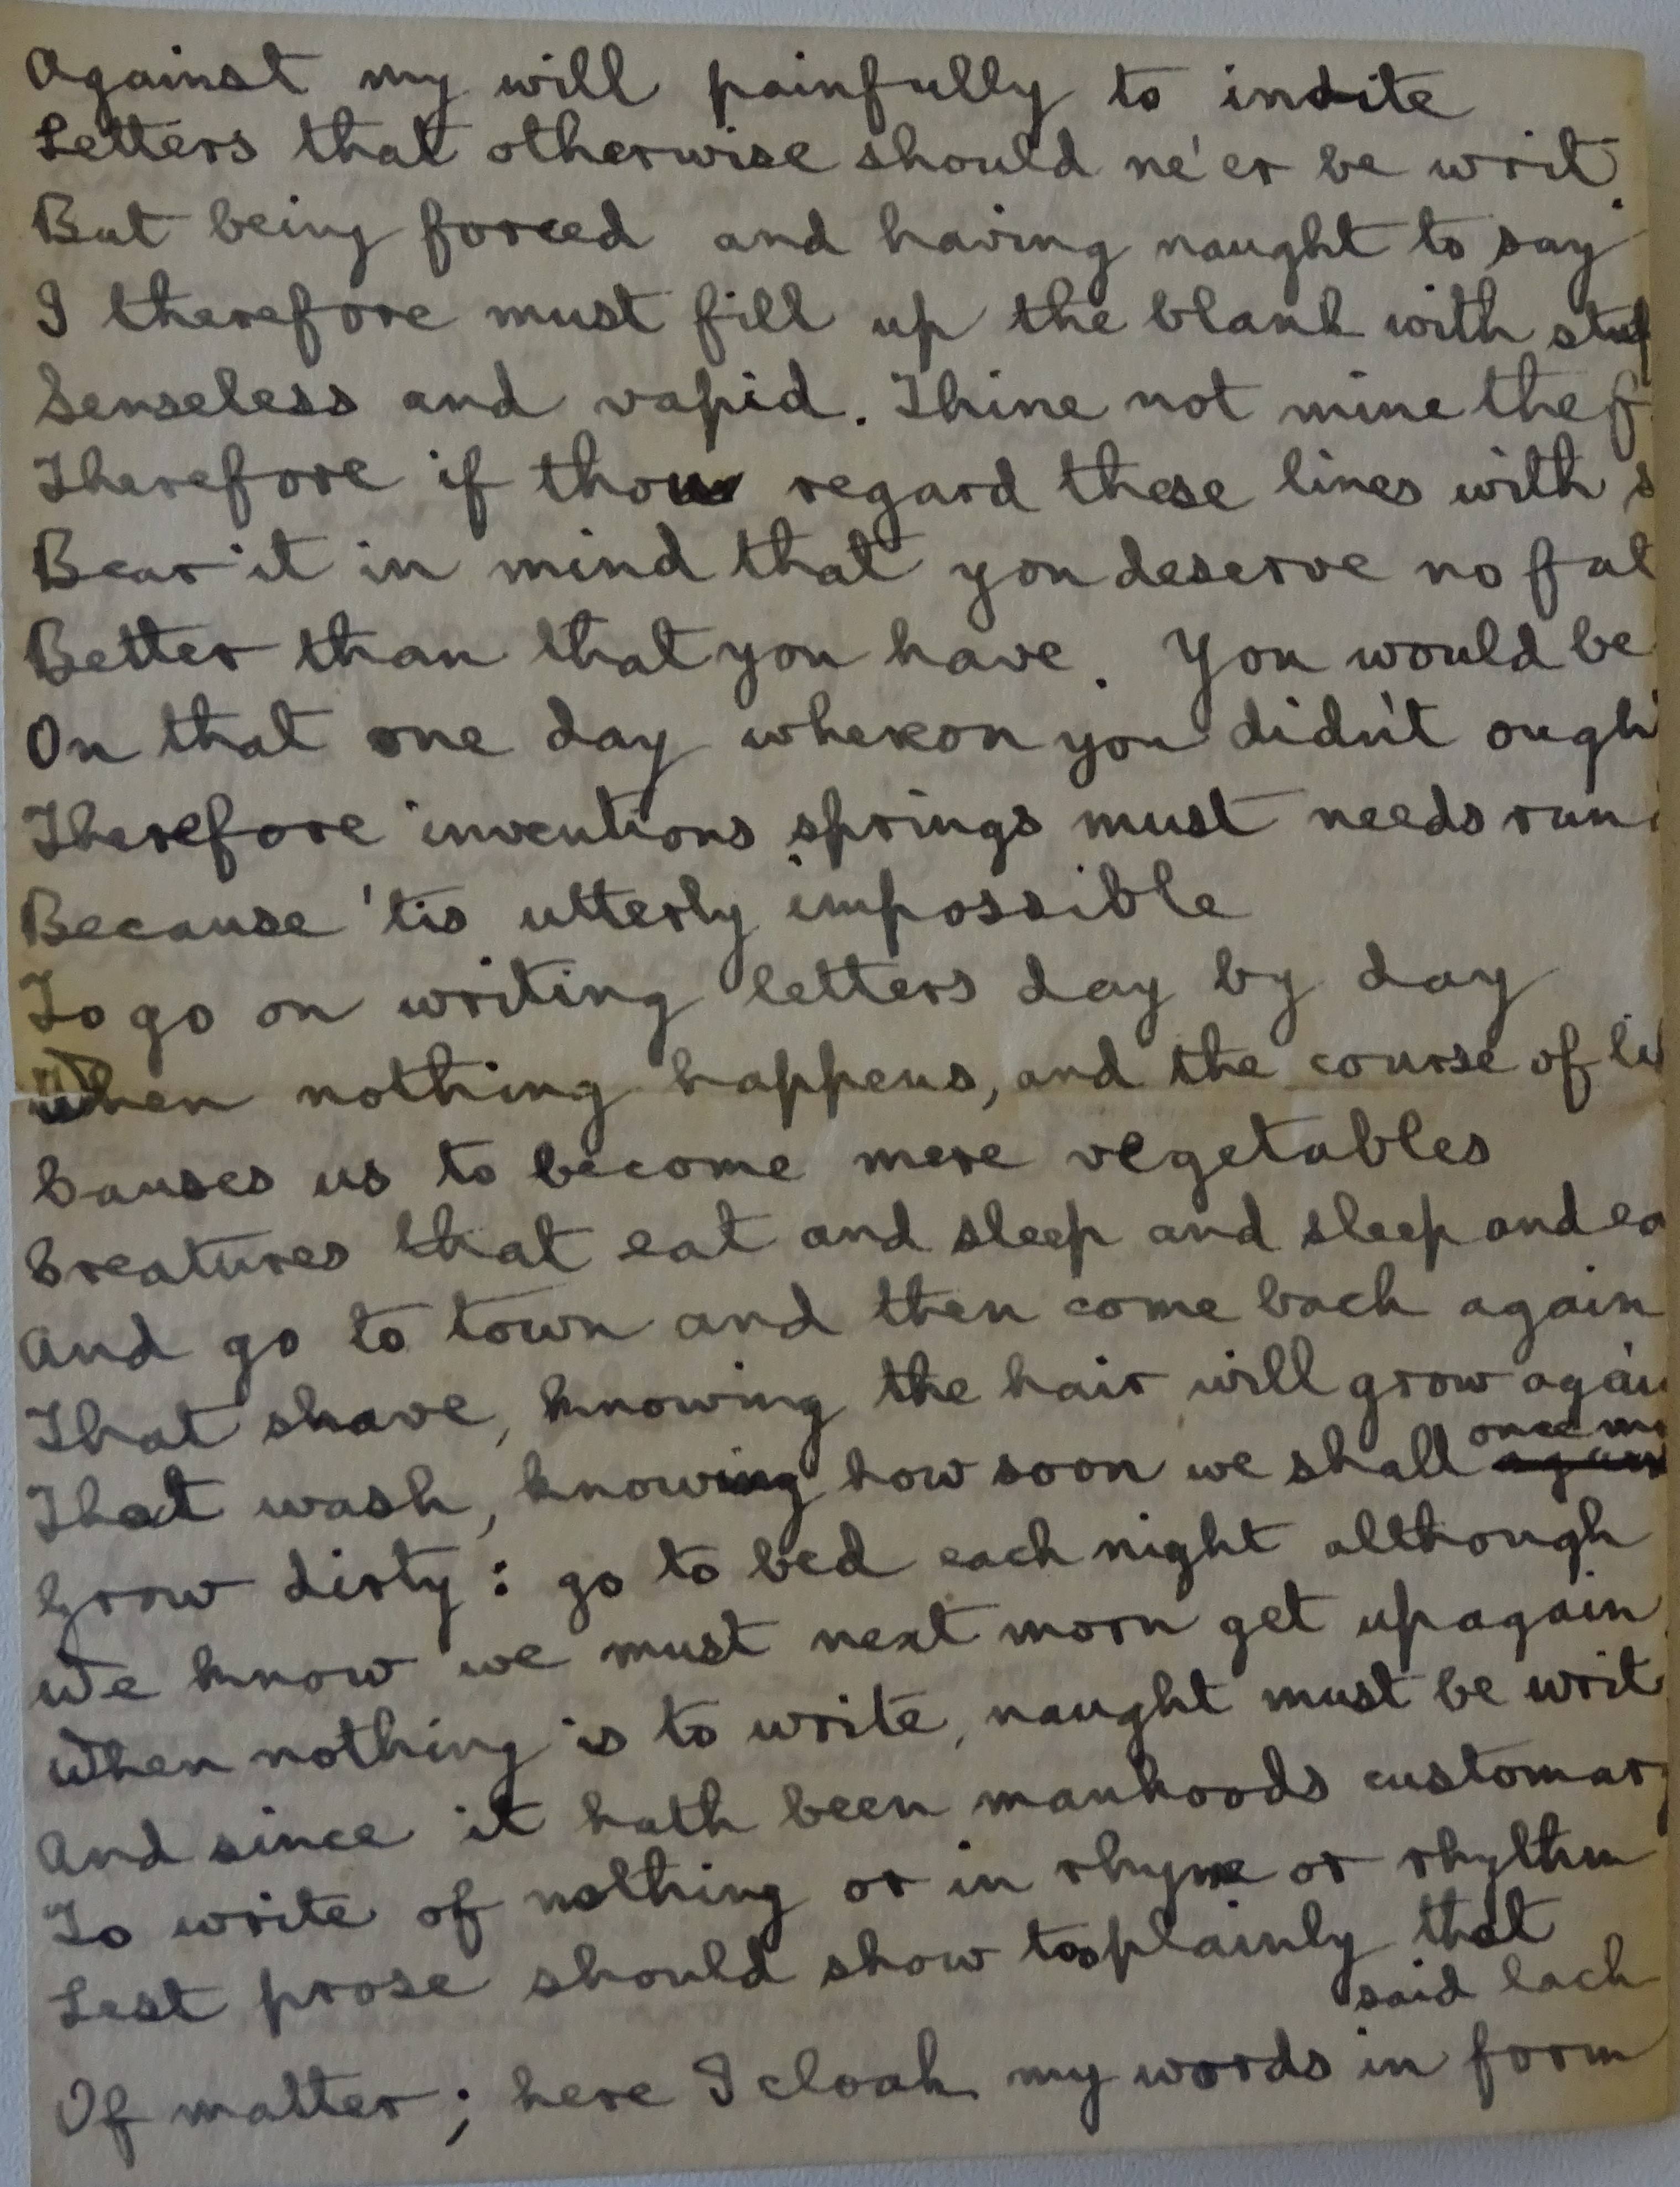 Against my will painfully to indite
Letters that otherwise should ne'er be writ.
But being forced and having naught to say
I therefore must fill up the blank with
Senseless and vapid. Thine not mine the
Therefore if thou regard these lines with
Bear it in mind that you deserve no
Better than that you have. You would be
On that one day whereon you didn't
Therefore inventions springs must needs run
Because 'tis utterly impossible
To go on writing letters day by day
When nothing happens, and the course of
Causes us to become mere vegetables
Creatures that eat and sleep and sleep and
And go to town and then come back again
That shave, knowing the hair will grow again
once
That wash, knowing how soon we shall
Grow dirty: go to bed each night although
We know we must next morn get up again
When nothing is to write, naught must be writ
And since it hath been manhoods customary
To write of nothing or in rhyme or rhythm
Lest prose should show too plainly that
said lack
Of matter; here I cloak my words in form